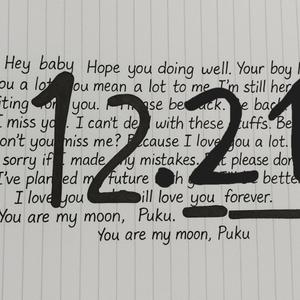 Hey baby Hope you doing well. Your boy
ou a lot. ou mean a lot to me. I'm still her
fting for you. se be back. e bac
miss yo . I can't de with these tuffs. Be
on't you miss me? Because I love you a lot.
sorry if I made any mistakes. But please don
I've planned my future with y bette
I love you ill love you forever.
You are my moon, Puku.
You are my moon, Puku
12.21